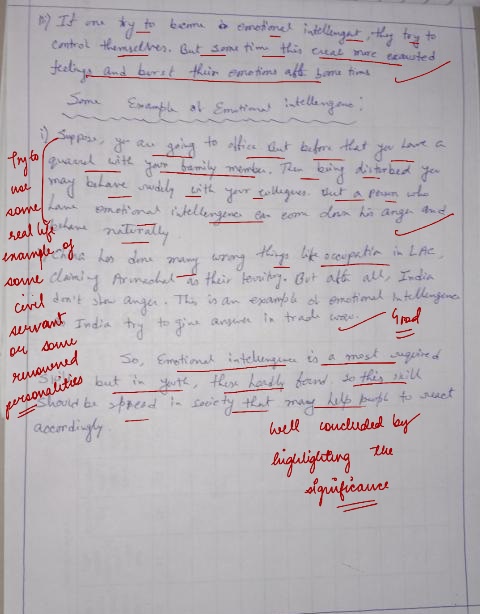 iv) If one try to become a emotional intelligent, they try to
control themselves. But some time this creat more exausted
feelings and burst their emotions after some time
Some Example of Emotional intelligence;
i) Suppose, you are going to office but before that you have a
quarrel with your family member. Then being disturbed you
may behave rudely with your collegues. But a person who
have emotional intelligence can com down his anger and
behave naturally.
China has done many wrong things like occupation in LAC,
claiming Arunachal as their territory. But after all, India
don't show anger. This is an example of emotional intelligence
India try to give answer in trade war.
Good
So, Emotional intelligence is a most required
skills but in youth, these hardly found. So this skill
should be spread in society that may help people to react
accordingly.
Try to
use
some
real life
example of
some
civil
servant
or some
renowned
personalities
well concluded by
highlighting the
significance